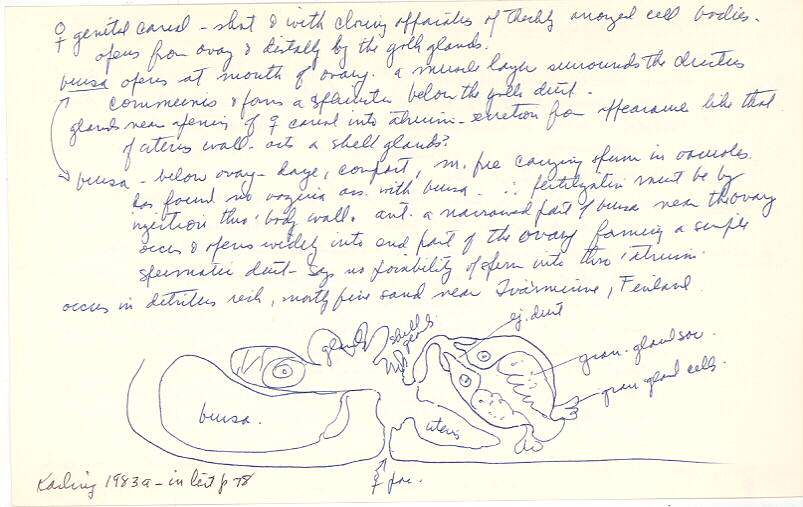 ♀ genital canal - short & with closing apparatus of thickly arranged cell bodies.
opens from ovary & distally by the yolk glands.
bursa opens at mouth of ovary. a muscle layer surrounds the ductus
communis & forms a sphincter below the yolk duct.
glands near opening of ♀ canal into atrium - secretion from appearance like that
of uterus wall - acts a shell glands?
bursa - below ovary - large, compact, m. free carrying sperm in vacuoles.
has found no vagina ass. with bursa - ∴ fertilization must be by
injection thru' body wall. ant. a narrowed part of bursa near the ovary
occurs & opens widely into end part of the ovary forming a simple
spermatic duct - says no possibility of sperm into thro' atrium.
occurs in detritus rich, mostly fine sand near Tvärminne, Finland.
glands
shell glands
ej. duct
gran. gland sec.
gran. gland cells.
bursa.
uterus
♀ pore.
Karling 1983a - in list p 78